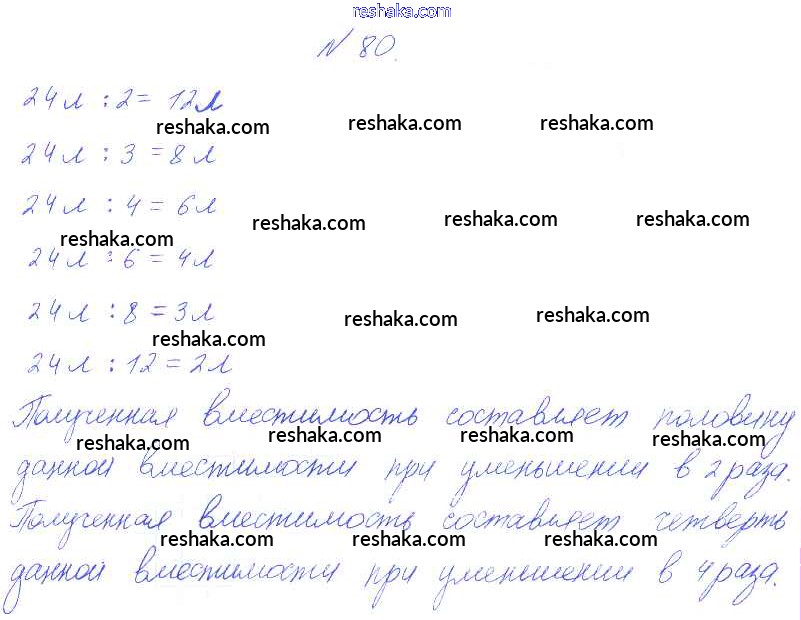 reshaka.com
№ 80.
24 л : 2 = 12 л
reshaka.com reshaka.com reshaka.com
24 л : 3 = 8 л
24 л : 4 = 6 л
reshaka.com reshaka.com reshaka.com reshaka.com
24 л : 6 = 4 л
24 л : 8 = 3 л
reshaka.com reshaka.com reshaka.com
24 л : 12 = 2 л
Полученная вместимость составляет половину
reshaka.com reshaka.com reshaka.com reshaka.com
данной вместимости при уменьшении в 2 раза.
Полученная вместимость составляет четверть
reshaka.com reshaka.com reshaka.com
данной вместимости при уменьшении в 4 раза.